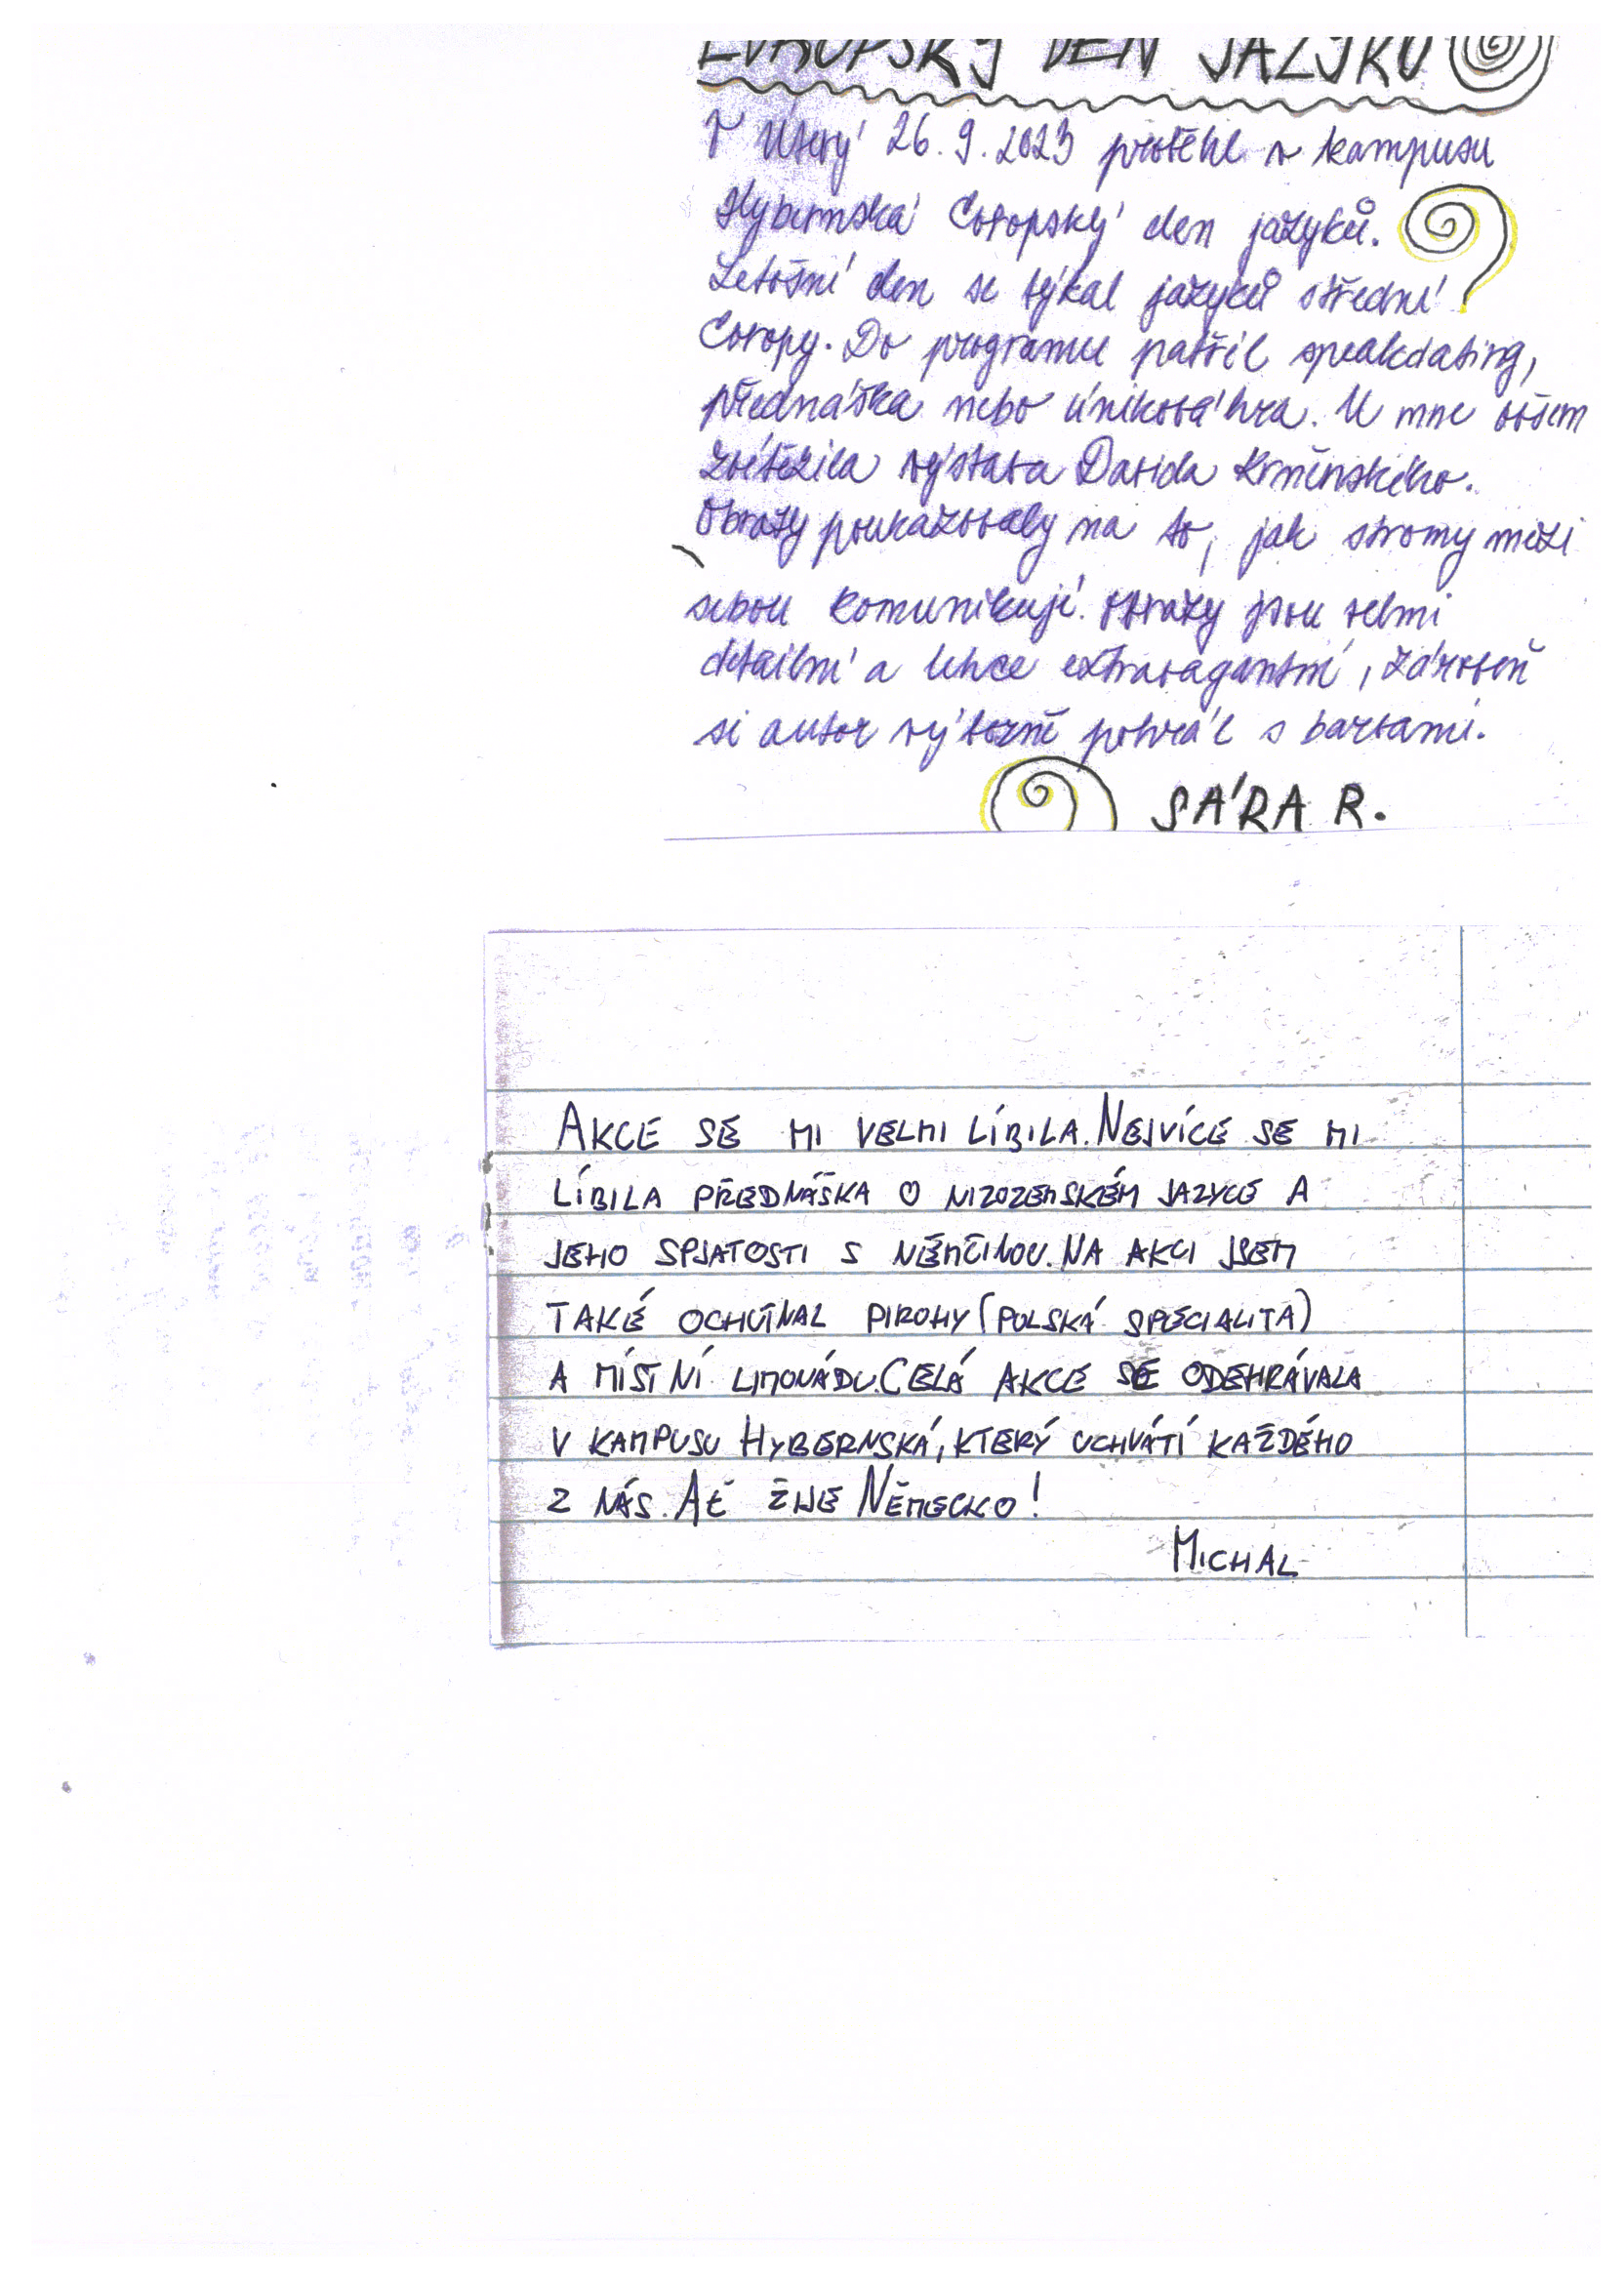 EVROPSKÝ DEN JAZYKŮ
V Úterý 26.9.2023 proběhl v kampusu
Hybernská Evropský den jazyků.
Letošní den se týkal jazyků střední
Evropy. Do programu patřil speakdating,
přednáška nebo úniková hra. U mne ovšem
zvítězila výstava Davida Krněnského.
Obrazy poukazovaly na to, jak stromy mezi
sebou komunikují. Obrazy jsou velmi
detailní a lehce extravagantní, zároveň
si autor výborně pohrál s barvami.
SÁRA R.
AKCE SE MI VELMI LÍBILA. NEJVÍCE SE MI
LÍBILA PŘEDNÁŠKA O NIZOZEMSKÉM JAZYCE A
JEHO SPJATOSTI S NĚMČINOU. NA AKCI JSEM
TAKÉ OCHUTNAL PIROHY (POLSKÁ SPECIALITA)
A MÍSTNÍ LIMONÁDU. CELÁ AKCE SE ODEHRÁVALA
V KAMPUSU HYBERNSKÁ, KTERÝ UCHVÁTÍ KAŽDÉHO
Z NÁS. AŤ ŽIJE NĚMECKO!
MICHAL